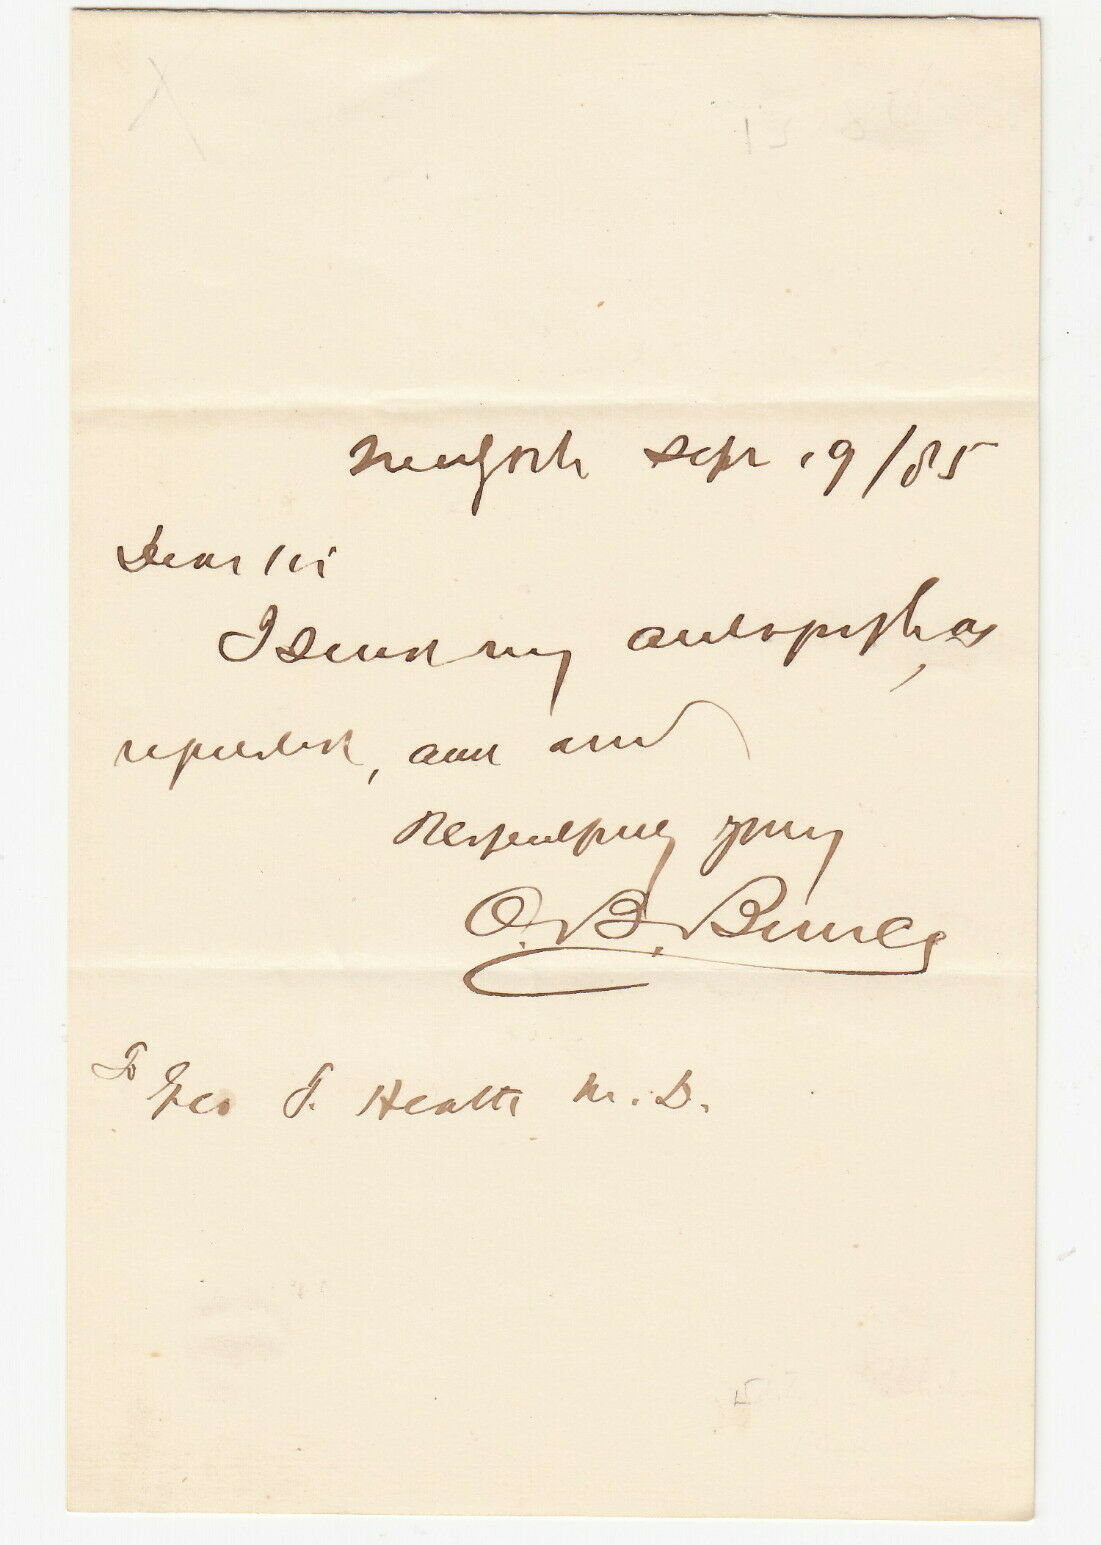 New York Sept 19/85
Dear Sir
I send my autograph, as
requested, and am
Respectfully yours
O. B. Bunce
To Geo T. Heath M.D.